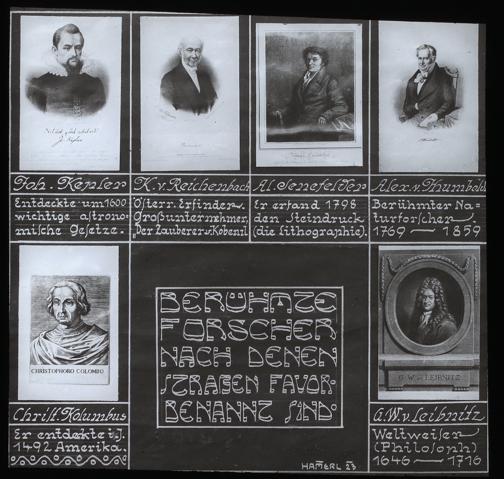 Joh. Kepler
Entdeckte um 1600
wichtige astrono=
mische Gesetze.
K. v. Reichenbach
Österr. Erfinder,
Großunternehmer,
"Der Zauberer v. Kobenzl
Al. Senefelder
Er erfand 1798
den Steindruck
(die Lithographie).
Alex. v. Humboldt
Berühmter Na=
turforscher.
1769 — 1859
CHRISTOPHORO COLOMBO
Christ. Kolumbus
Er entdekte i. J.
1492 Amerika.
BERÜHMTE
FORSCHER
NACH DENEN
STRAßEN FAVOR-
BENANNT SIND.
HAMERL 23
G. W. v. LEIBNITZ
G. W. v. Leibnitz
Weltweiser
(Philosoph)
1646 — 1716